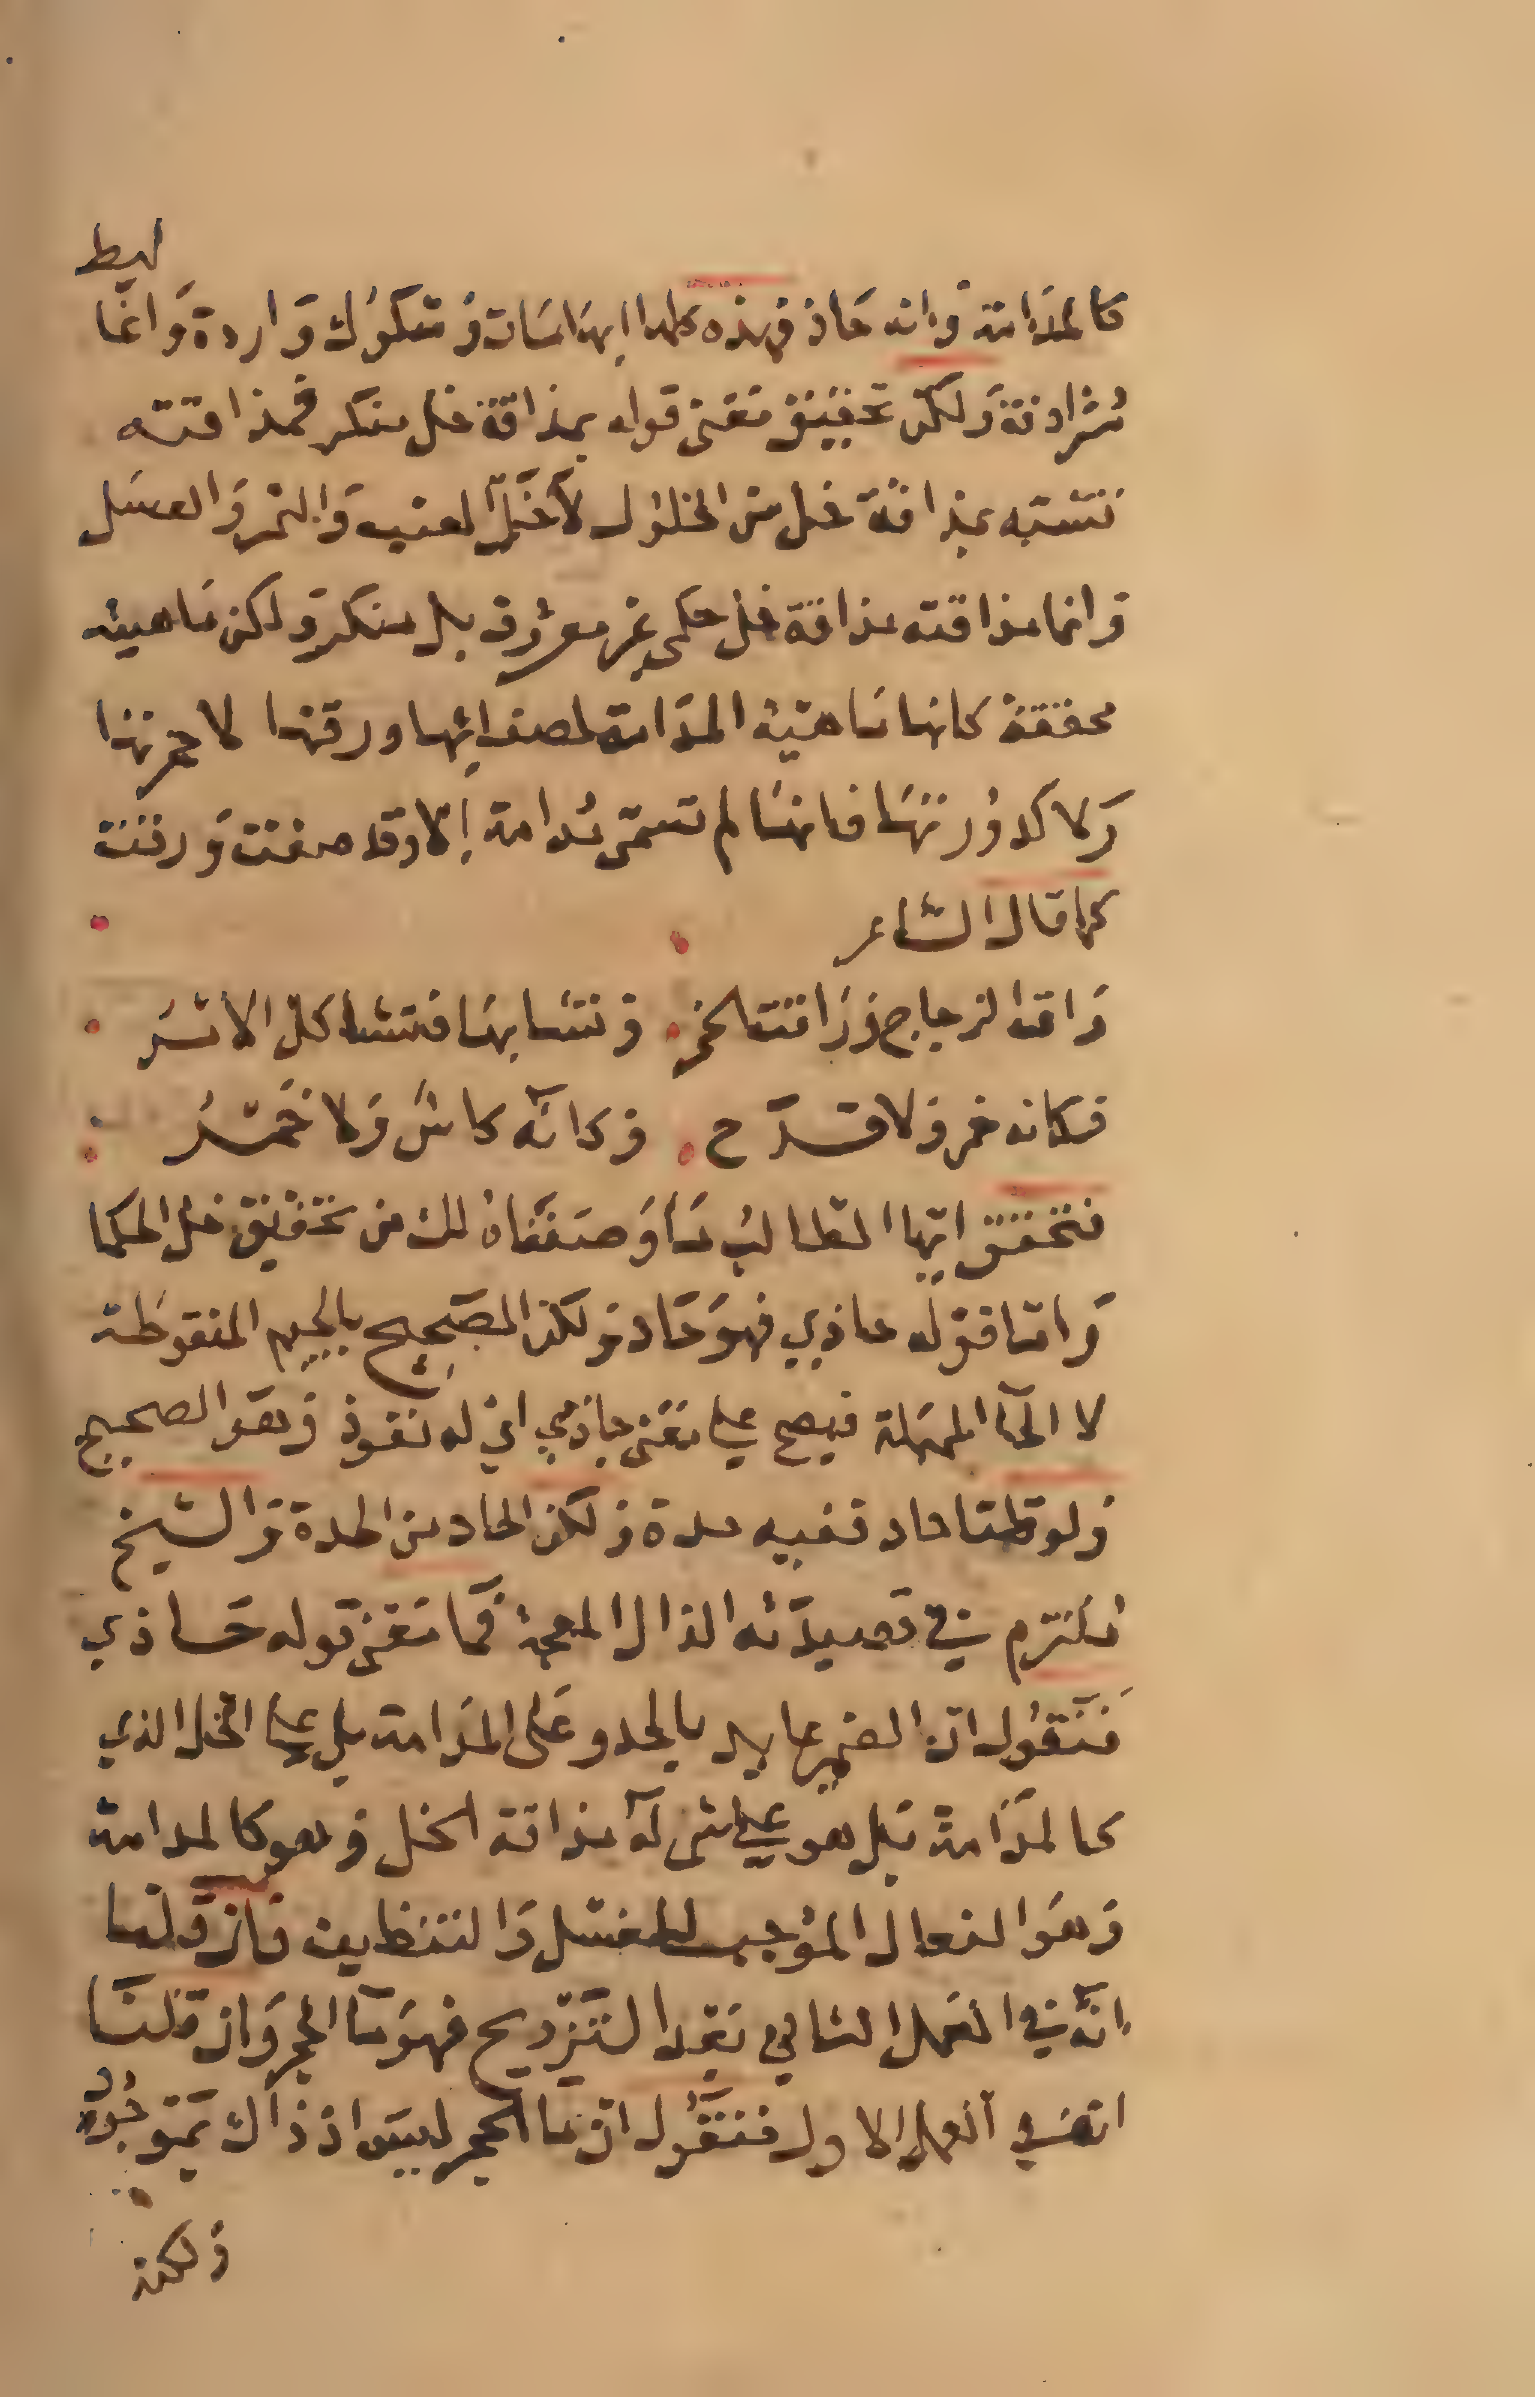 ليط
كالمدامة وانه حاذ فهذه كلها ايهامات وشكوك واردة وانما
مترادفة ولكن تحقيق معنى قوله بمذاقة خل منكر فمذاقته
تشبه بمذاقة خل من الخلول لا خل العنب والتمر والعسل
وانما مذاقته مذاقة خل حكمي غير معروف بل منكر ولكن ماهيته
محققة كانها ماهية المدامة لصفائها ورقتها لا حمرتها
ولا كدورتها فانها لم تسمى مدامة إلا وقد صفت ورقت
كما قال الشاعر
راق الزجاج وراقت الخمر وتشابها فتشاكل الامر
فكانه خمر ولا قدح وكانه كاس ولا خمر
فتحقق ايها الطالب ما وصفناه لك من تحقيق خل الحكما
واما قوله حاذي فهو حاد ولكن الصحيح بالجيم المنقوطة
لا الحآ المهملة فيصح على معنى جاذي اي له نفوذ وهو الصحيح
ولو قلنا حاد ففيه حدة ولكن الحاد من الحدة والشيخ
ملتزم في قصيدته الذال المعجمة فما معنى قوله حاذي
فنقول ان الضمير عايد بالحدو على المدامة بل على الخل الذي
كالمدامة بل هو على شي له مذاقة الخل وهو كالمدامة
وهو الفعال الموجب للغسل والتنظيف فان قلنا
انه في العمل الثاني بعد التزويج فهو مآ الحجر وان قلنا
انه في العمل الاول فنقول ان مآ الحجر ليس اذ ذاك بموجود
ولكنه